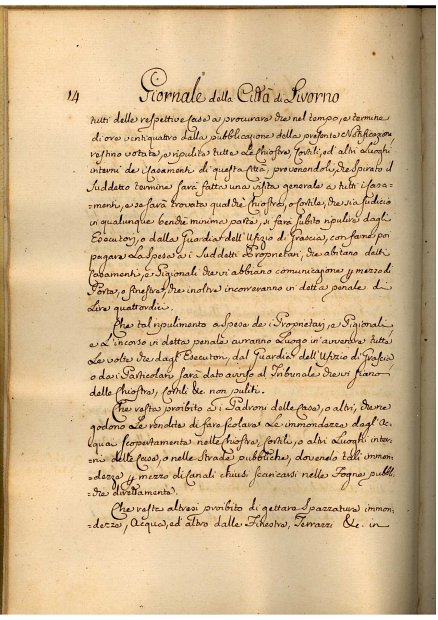 14 Giornale della Città di Livorno
tutti delle respettive Case a procurare che nel tempo, e termine
di ore ventiquattro dalla pubblicazione della presente Notificazione,
restino votate, e ripulite tutte Le Chiostre, Cortili, ed altri Luoghi
interni de i Casamenti di questa Città, prevenendoli, che spirato il
Suddetto termine sarà fatta una visita generale a tutti i Casa=
=menti, e se sarà trovata qualche Chiostra, o Cortile, che sia sudicio
in qualunque benchè minima parte, si farà subito ripulire dagli
Esecutori, o dalla Guardia dell'Ufizio di Grascia, con fare poi
pagare La Spesa a i Suddetti Proprietari, che abitano detti
Casamenti, e Pigionali che vi abbiano comunicazione p mezzo di
Porta, o finestra, che inoltre incorreranno in detta penale di
Lire quattordici.
Che tal ripulimento a Spese de i Proprietari, e Pigionali
e L'incorso in detta penale avranno Luogo in avvenire tutte
Le volte che dagl'Esecutori, dal Guardia dell'Ufizio di Grascia
o da i Particolari sarà dato avviso al Tribunale che vi siano
delle Chiostre, Cortili &c. non puliti.
Che resta proibito a i Padroni delle Case, o altri, che ne
godono Le rendite di fare scolare Le immondezze dagl'Ac=
quai scopertamente nelle Chiostre, Cortili, o altri Luoghi inter=
ni delle Case, o nelle Strade pubbliche, dovendo tali immon=
=dezze p mezzo di Canali chiusi scaricarsi nelle Fogne pubbli=
=che direttamente.
Che resta altresì proibito di gettare Spazzature immon=
=dezze, Acqua, ed altro dalle Finestre, Terrazzi &c. in